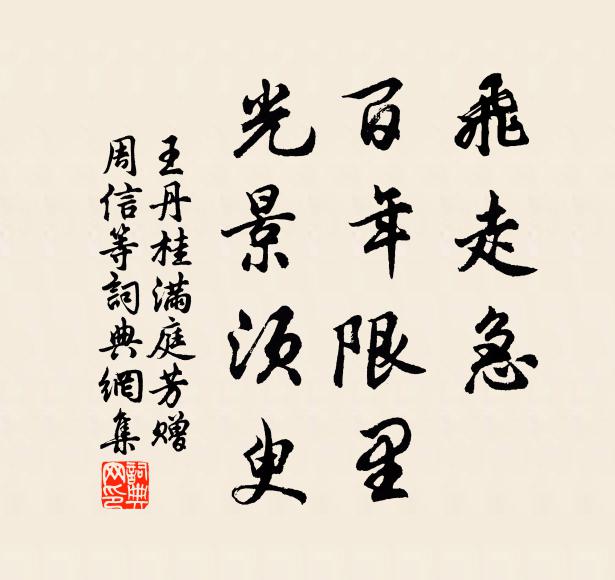 飛走急
百年限里
光景須臾
王丹桂滿庭芳贈
周信等詞典網集
詞典
网印